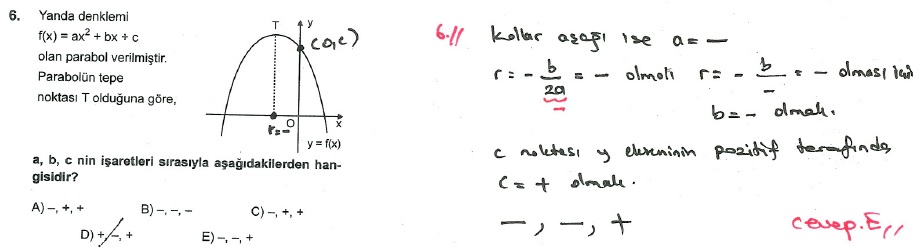 6. Yanda denklemi
f(x) = ax² + bx + c
olan parabol verilmiştir.
Parabolün tepe
noktası T olduğuna göre,
T
y
(0,c)
O
x
r=-
y = f(x)
a, b, c nin işaretleri sırasıyla aşağıdakilerden han-
gisidir?
A) –, +, + B) –, –, – C) –, +, +
D) +, –, + E) –, –, +
6.// kollar aşağı ise a = –
r = - b/2a = - olmalı r = - b/- = - olması için
-
b = - olmalı.
c noktası y ekseninin pozitif tarafında,
c = + olmalı.
–, –, +
cevap.E,,